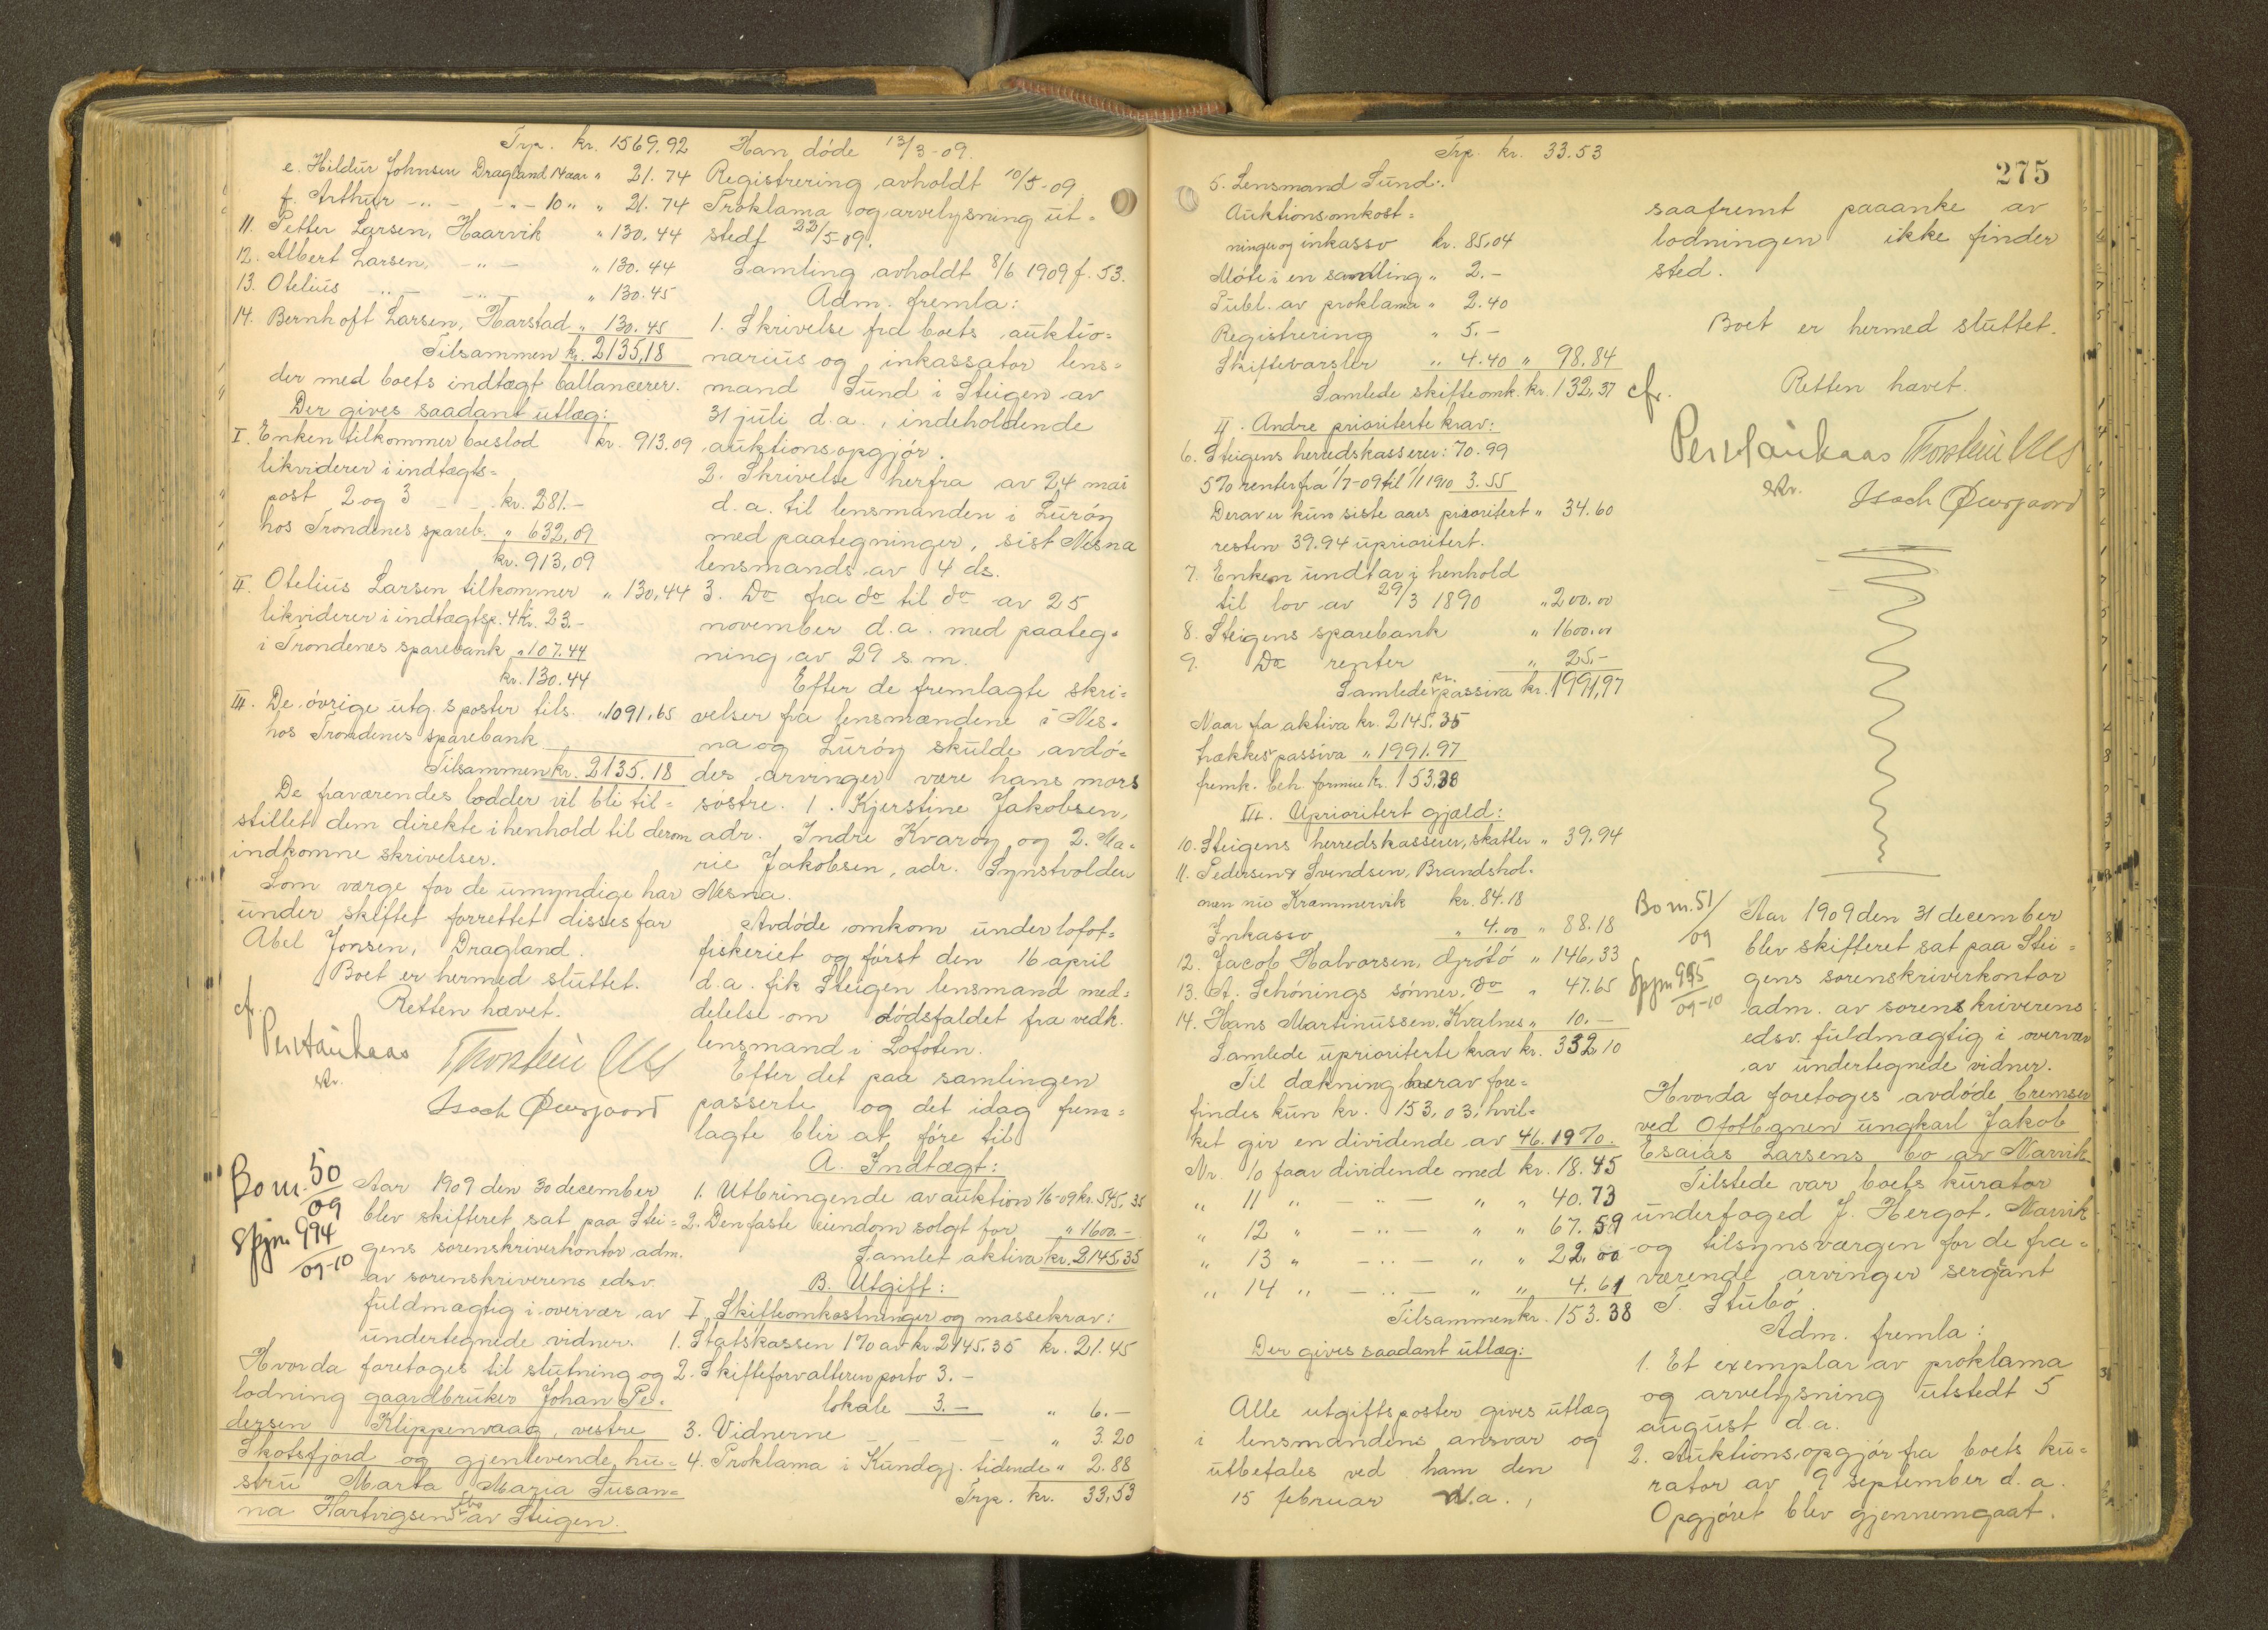 Trp. kr. 1569.92
e. Hildur Johnsen Dragland 14 aar " 21.74
f. Arthur -"- -"- 10 " " 21.74
11. Petter Larsen, Haarvik " 130.44
12. Albert Larsen, -"- " 130.44
13. Otelius -"- -"- " 130.45
14. Bernhoft Larsen, Harstad " 130.45
Tilsammen kr. 2135,18
der med boets indtægt ballancerer.
Der gives saadant utlæg:
I. Enken tilkommer boeslod kr. 913.09
likviderer i indtægts=
post 2 og 3 kr. 281.-
hos Trondenes spareb. " 632,09
kr. 913,09
II. Otelius Larsen tilkommer " 130,44
likviderer i indtægtsp. 4 kr. 23.-
i Trondenes sparebank " 107.44
kr. 130.44
III. De øvrige utg.sposter tils. " 1091.65
hos Trondenes sparebank
Tilsammen kr. 2135.18
De fraværendes lodder vil bli til=
stillet dem direkte i henhold til derom
indkomne skrivelser.
Som værge for de umyndige har
under skiftet forrettet disses far
Abel Jonsen, Dragland.
Boet er hermed sluttet.
cf. Retten hævet.
skr.
Bo nr. 50/09
Spjn 994/09-10
Aar 1909 den 30 december
blev skifteret sat paa Stei=
gens sorenskriverkontor adm.
av sorenskriverens edsv.
fuldmægtig i overvær av
undertegnede vidner.
Hvorda foretoges til slutning og
lodning gaardbruker Johan Pe=
dersen Klippenvaag, vestre
Skotsfjord og gjenlevende hu=
stru Marta Maria Susan=
na Hartvigsens bo av Steigen.
Han døde 13/3-09.
Registrering avholdt 10/5-09
Proklama og arvelysning ut=
stedt 22/5-09.
Samling avholdt 8/6 1909 f. 53.
Adm. fremla:
1. Skrivelse fra boets auktio=
narius og inkassator lens=
mand Sund i Steigen av
31 juli d.a., indeholdende
auktionsopgjør.
2. Skrivelse herfra av 24 mai
d.a. til lensmanden i Lurøy
med paategninger, sist Nesna
lensmands av 4 ds.
3. Do fra do til do av 25
november d.a. med paateg=
ning av 29 s.m.
Efter de fremlagte skri=
velser fra lensmændene i Nes=
na og Lurøy skulde avdø=
des arvinger være hans mors
søstre. 1. Kjerstine Jakobsen,
adr. Indre Kvarøy og 2. Ma=
rie Jakobsen, adr. Synstvolden
Nesna.
Avdøde omkom under lofot=
fiskeriet og først den 16 april
d.a. fik Steigen lensmand med=
delelse om dødsfaldet fra vedk.
lensmand i Lofoten.
Efter det paa samlingen
passerte og det idag frem=
lagte blir at føre til
A. Indtægt:
1. Utbringende av auktion 1/6-09 kr. 545,35
2. Den faste eiendom solgt for " 1600.-
Samlet aktiva kr. 2145,35
B. Utgift:
I Skifteomkostninger og massekrav:
1. Statskassen 1% av kr 2145.35 kr. 21.45
2. Skifteforvalteren porto 3.-
lokale 3.- " 6.-
3. Vidnerne " 3.20
4. Proklama i Kundgj. tidende " 2.88
Trp. kr. 33,53
275
Trp. kr. 33.53
5. Lensmand Sund:
Auktionsomkost=
ninger og inkasso kr. 85,04
Møte i en samling " 2.-
Publ. av proklama " 2.40
Registrering " 5.-
Skiftevarsler " 4.40 " 98.84
Samlede skifteomk. kr. 132,37
II. Andre prioriterte krav:
6. Steigens herredskasserer: 70.99
5% renter fra 1/7-09 til 1/1 1910 3.55
Derav er kun siste aars prioritert " 34.60
resten 39.94 uprioritert.
7. Enken undtar i henhold
til lov av 29/3 1890 " 200.00
8. Steigens sparebank " 1600.00
9. Do renter " 25.-
Samlede pr. passiva kr. 1991,97
Naar fra aktiva kr. 2145.35
trækkes passiva " 1991.97
fremk. beh. formue kr. 153.38
III. Uprioritert gjæld:
10. Steigens herredskasserer, skatter " 39.94
11. Pedersen & Svendsen, Brandshol=
men nio Kræmmervik kr. 84.18
Inkasso " 4.00 " 88.18
12. Jacob Halvorsen, Grøtø " 146,33
13. A. Schønings sønner, do " 47.65
14. Hans Martinussen, Kvalnes " 10.-
Samlede uprioriterte krav kr. 332,10
Til dækning herav fore=
findes kun kr. 153,03, hvil=
ket gir en dividende av 46.19%.
Nr. 10 faar dividende med kr. 18.45
" 11 " -"- " " 40.73
" 12 " -"- " " 67.59
" 13 " -"- " " 22.00
" 14 " -"- " " 4.61
Tilsammen kr. 153.38
Der gives saadant utlæg:
Alle utgiftsposter gives utlæg
i lensmandens ansvar og
utbetales ved ham den
15 februar n.a.,
saafremt paaanke av
lodningen ikke finder
sted.
Boet er hermed sluttet.
cfr. Retten hævet.
skr.
Bo nr. 51/09
Spjn 995/09-10
Aar 1909 den 31 december
blev skifteret sat paa Stei=
gens sorenskriverkontor
adm. av sorenskriverens
edsv. fuldmægtig i overvær
av undertegnede vidner.
Hvorda foretoges avdøde bremser
ved Ofotbanen ungkarl Jakob
Esaias Larsens bo av Narvik
Tilstede var boets kurator
underfoged J. Hergot, Narvik
og tilsynsværgen for de fra=
værende arvinger sergeant
T. Stubø.
Adm. fremla:
1. Et exemplar av proklama
og arvelysning utstedt 5
august d.a.
2. Auktionsopgjør fra boets ku=
rator av 9 september d.a.
Opgjøret blev gjennemgaat.